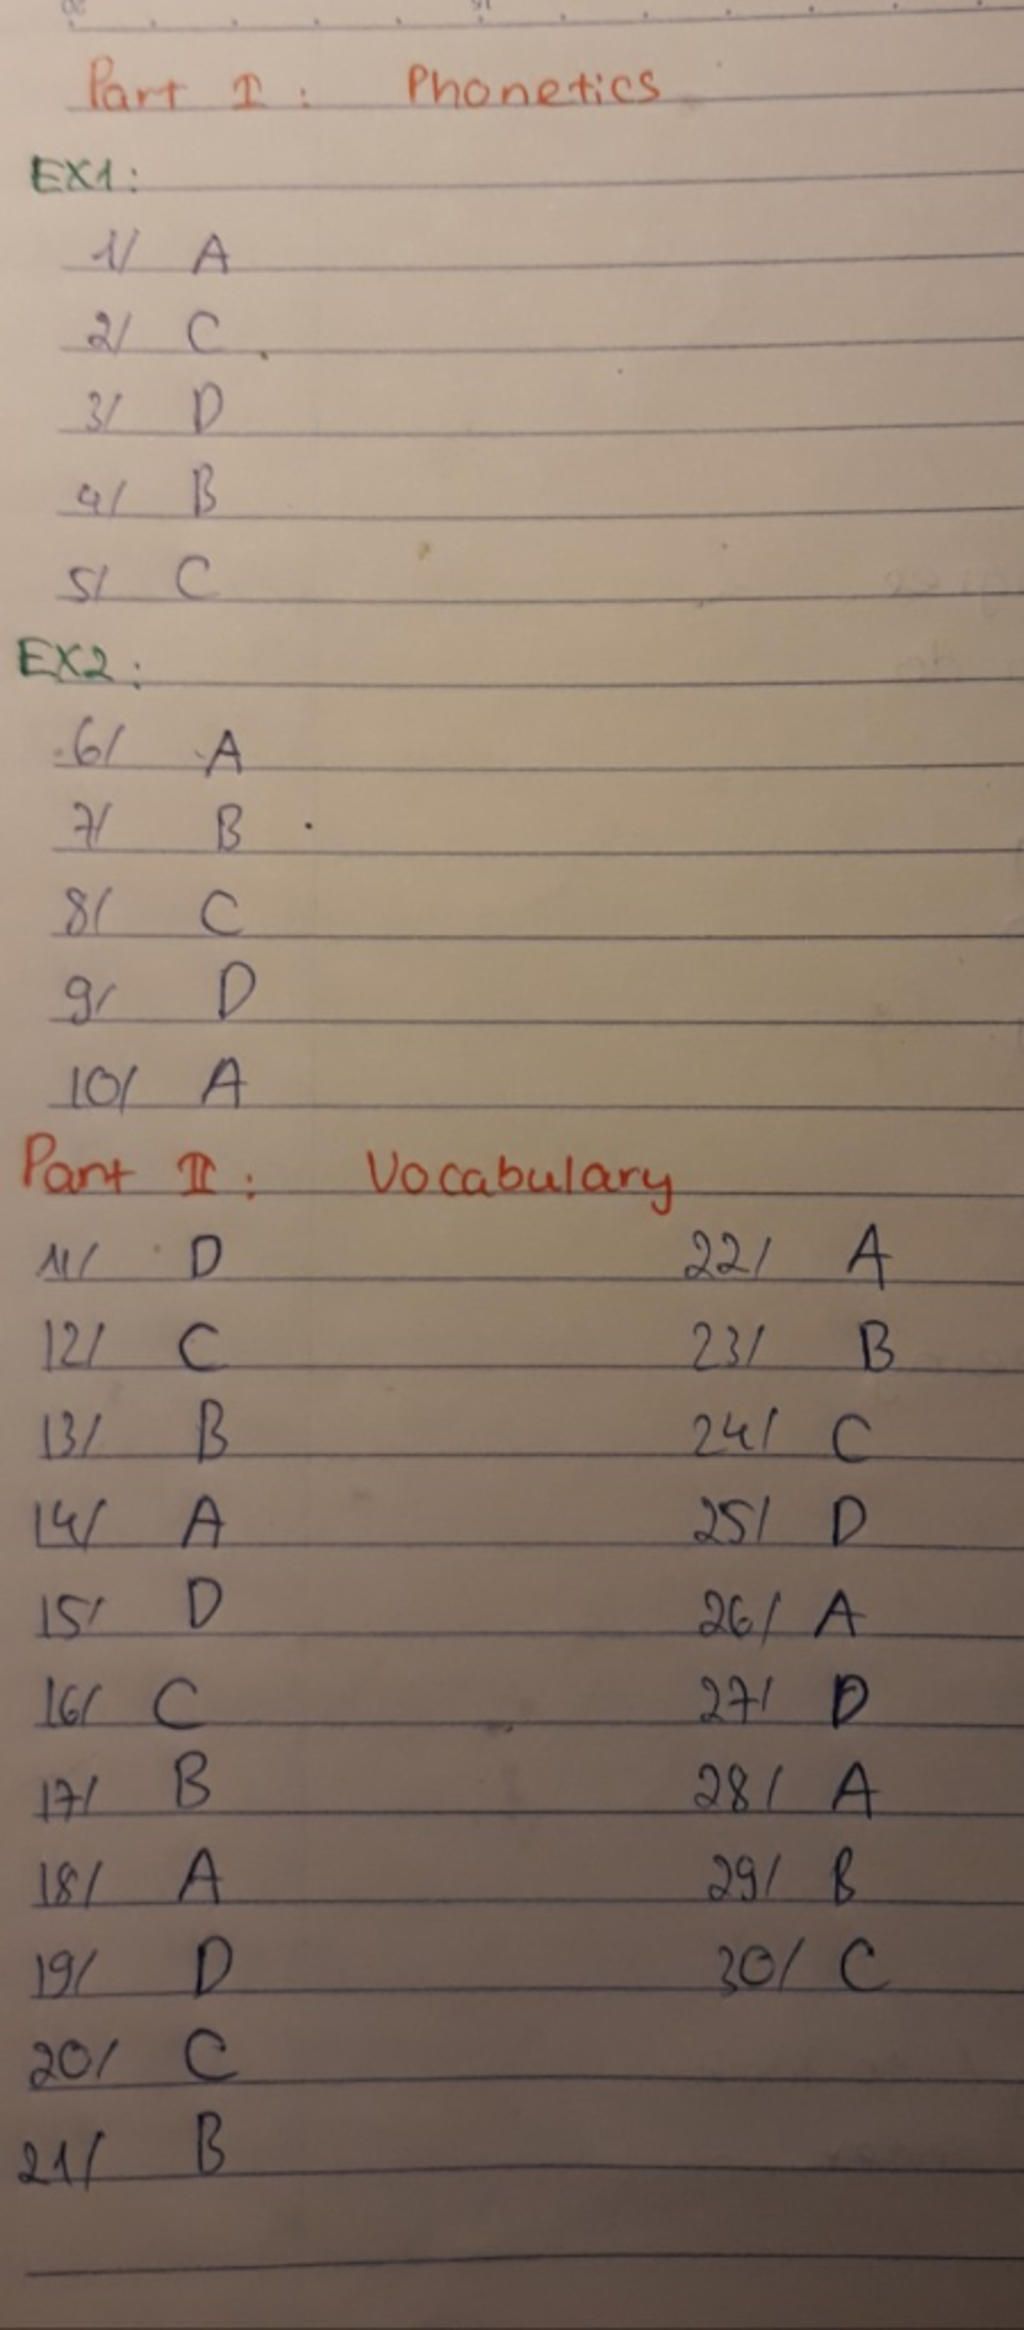 Part I : Phonetics
EX1:
1/ A
2/ C
3/ D
4/ B
5/ C
EX2:
6/ A
7/ B
8/ C
9/ D
10/ A
Part II : Vocabulary
11/ D
12/ C
13/ B
14/ A
15/ D
16/ C
17/ B
18/ A
19/ D
20/ C
21/ B
22/ A
23/ B
24/ C
25/ D
26/ A
27/ D
28/ A
29/ B
30/ C